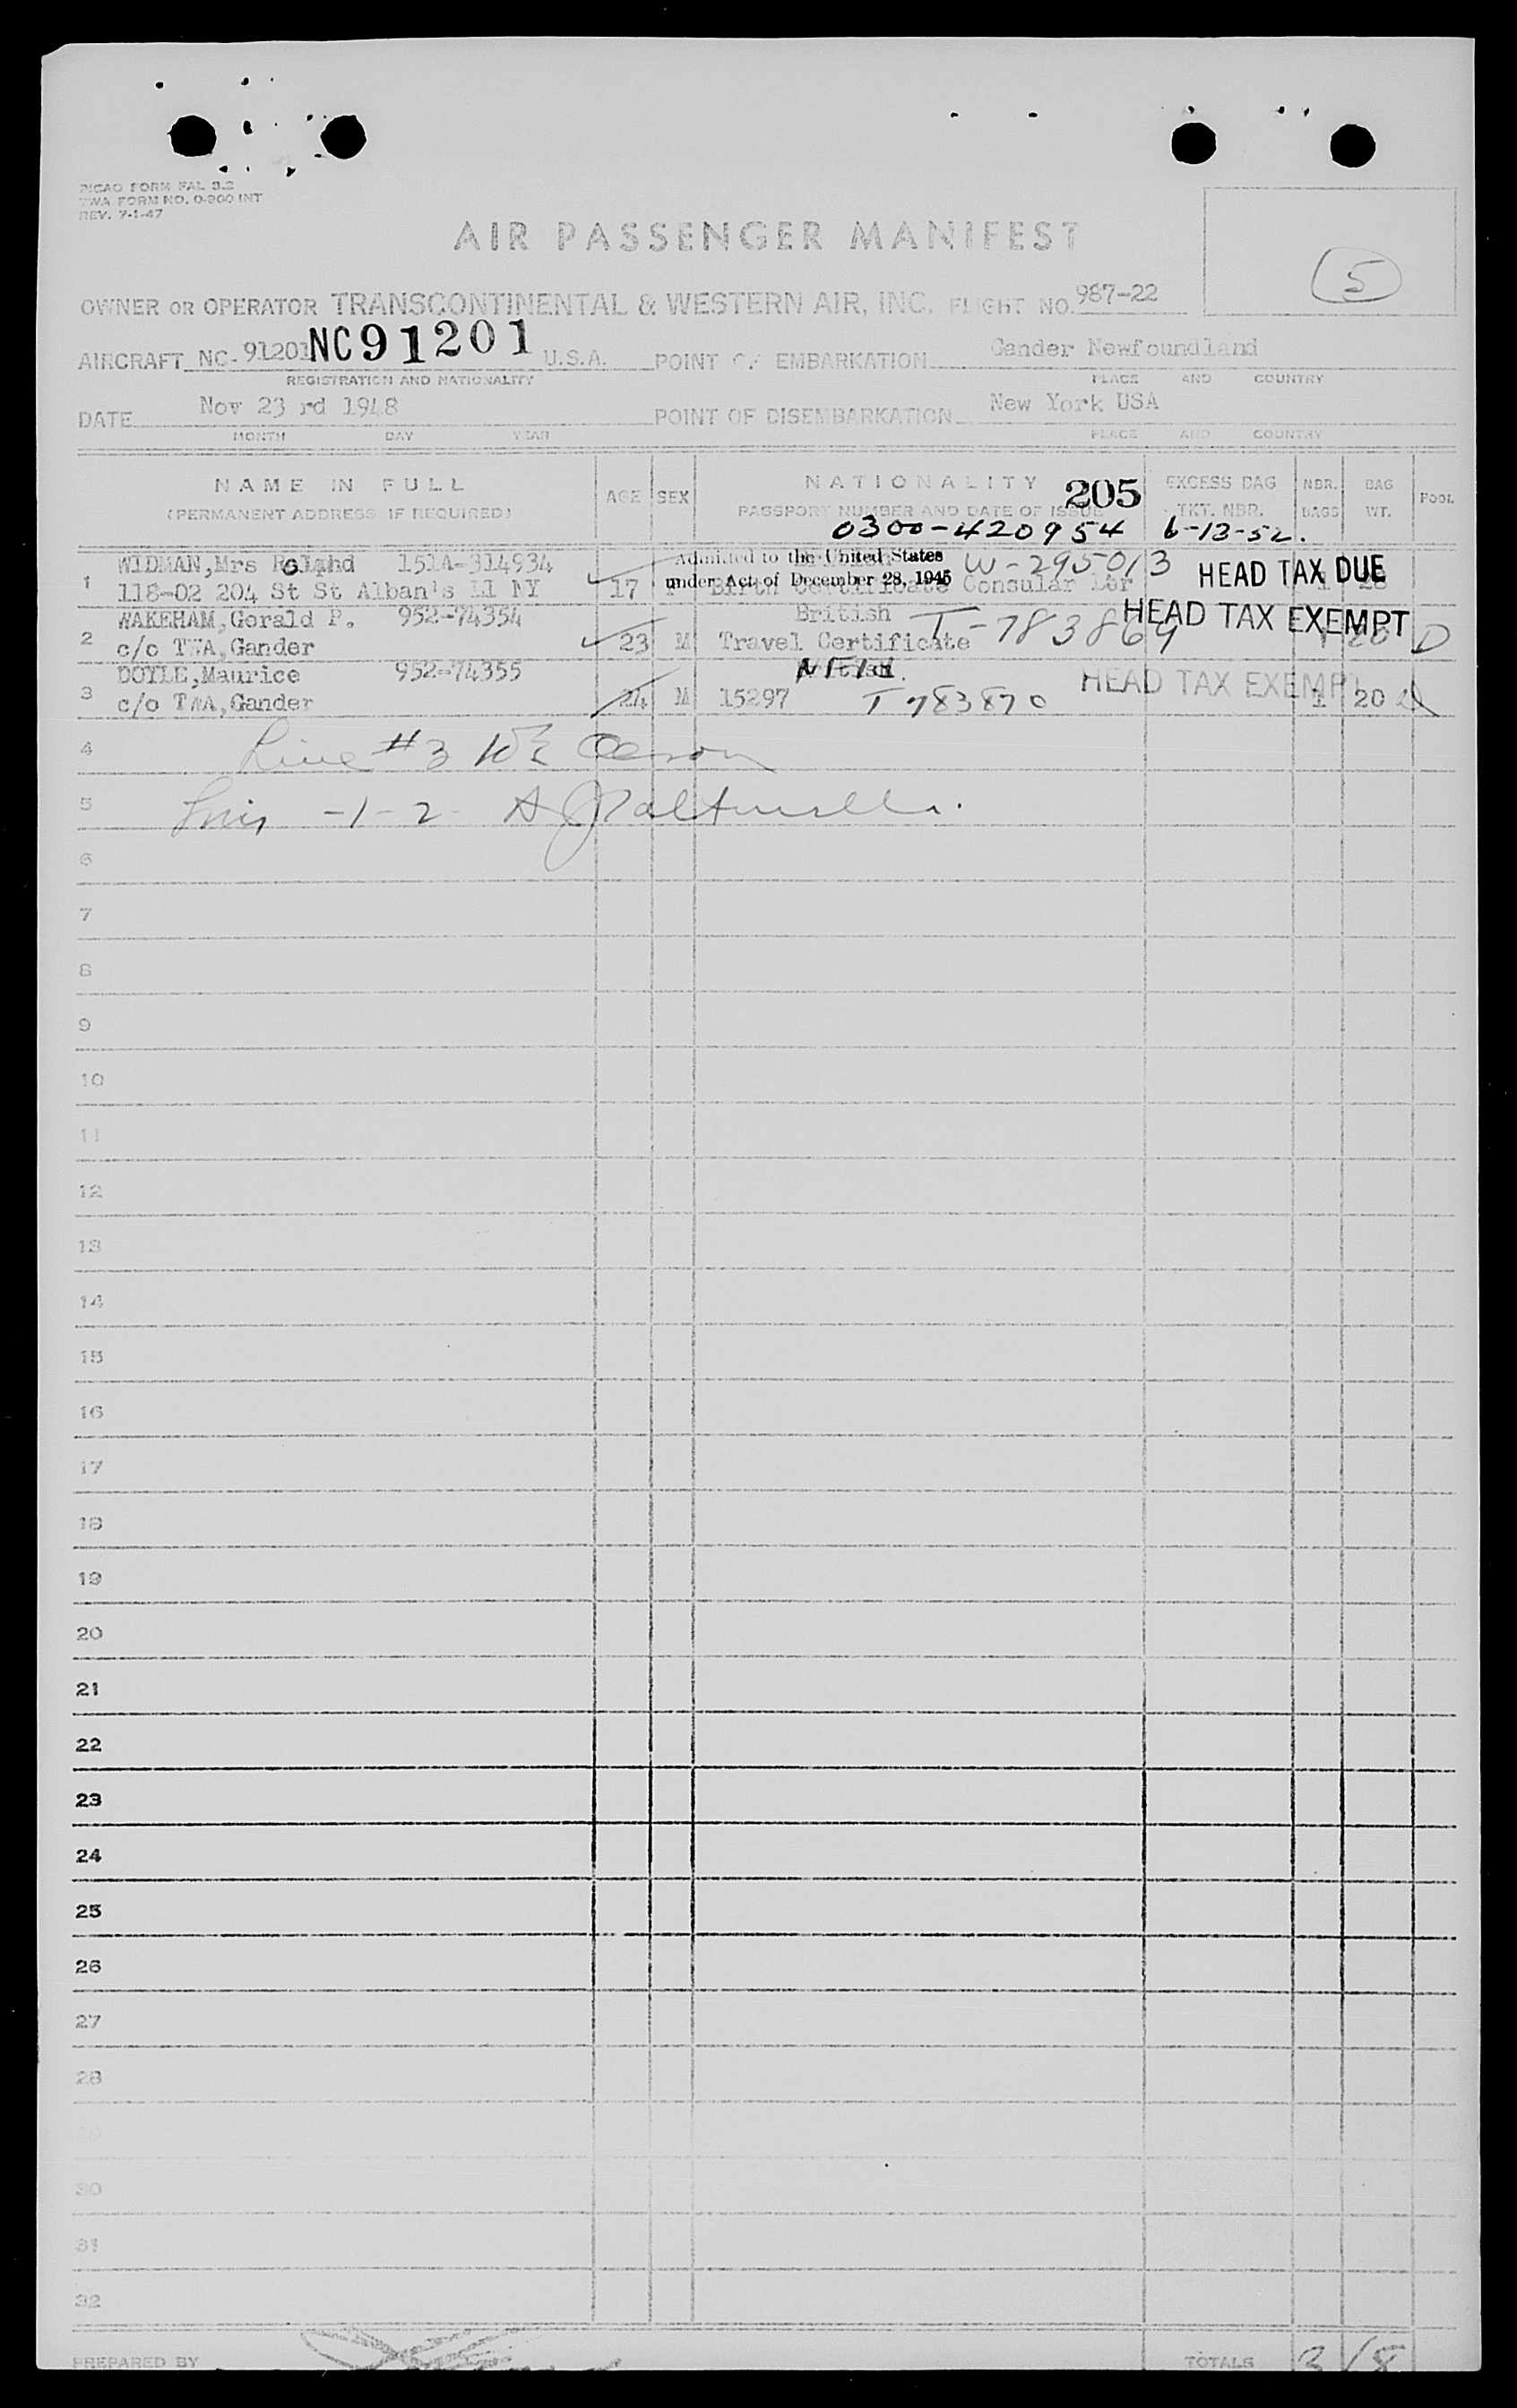 PICAO FORM FAL 3.2
TWA FORM NO. 0-900 INT
REV. 7-1-47
AIR PASSENGER MANIFEST
5
OWNER OR OPERATOR TRANSCONTINENTAL & WESTERN AIR, INC. FLIGHT NO. 967-22
AIRCRAFT NC- 91201 NC91201 U.S.A. POINT OF EMBARKATION Gander Newfoundland
REGISTRATION AND NATIONALITY PLACE AND COUNTRY
DATE Nov 23 rd 1948 POINT OF DISEMBARKATION New York USA
MONTH DAY YEAR PLACE AND COUNTRY
NAME IN FULL AGE SEX NATIONALITY 205 EXCESS BAG NBR. BAG POOL
(PERMANENT ADDRESS IF REQUIRED) PASSPORT NUMBER AND DATE OF ISSUE TKT. NBR. BAGS WT.
0300-420954 6-13-52.
WIDMAN,Mrs 151A-314934 Admitted to the United States W-295013 HEAD TAX DUE
1 118-02 204 St St Alban's LI NY 17 under Act of December 28, 1945 Birth Certificate Consular
WAKEHAM,Gerald P. 952-74354 British T-783869 HEAD TAX EXEMPT
2 c/o TWA,Gander 23 M Travel Certificate 20 D
DOYLE,Maurice 952-74355 NFld.
3 c/o TWA,Gander 24 M 15297 T 783870 HEAD TAX EXEMPT 1 20
4 Line #3
5 -1-2
6
7
8
9
10
11
12
13
14
15
16
17
18
19
20
21
22
23
24
25
26
27
28
30
31
32
PREPARED BY TOTALS 3